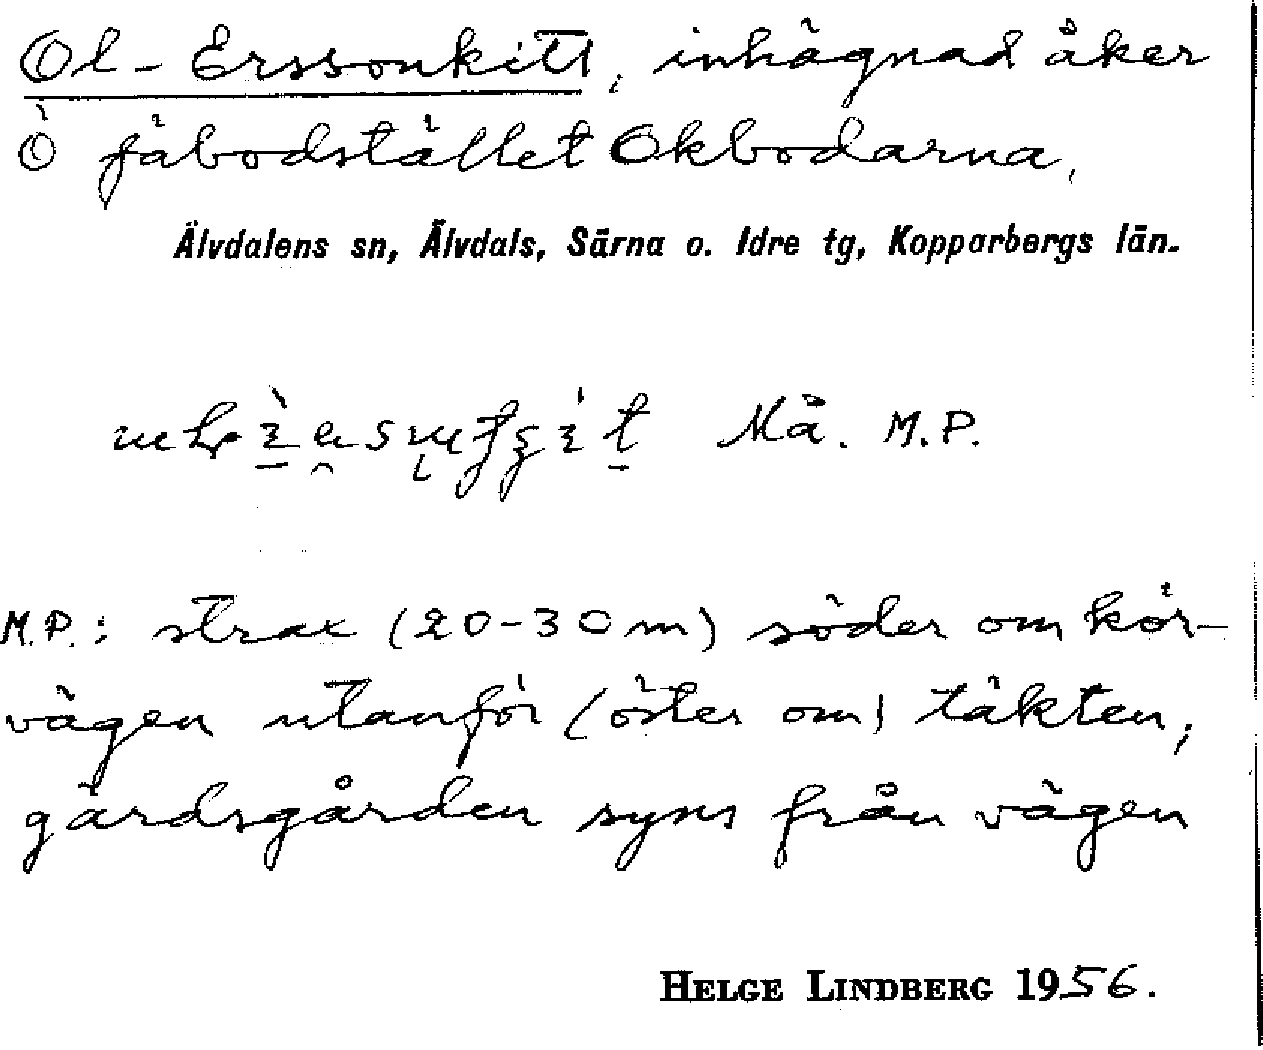 Ol-Erssonkitt, inhägnad åker
Ö fäbodstället Okbodarna,
Älvdalens sn, Älvdals, Särna o. Idre tg, Kopparbergs län.
Må. M.P.
M.P.: strax (20-30 m) söder om kör-
vägen utanför (öster om) täkten;
gärdsgården syns från vägen
HELGE LINDBERG 1956.